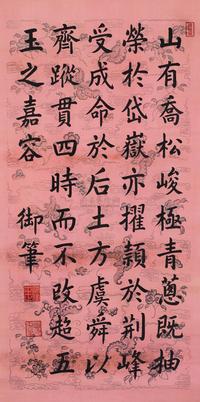 山有喬松峻極青蔥既抽
榮於岱嶽亦擢頴於荆峰
受成命於后土方虞舜以
齊蹤貫四時而不改超五
玉之嘉容
御筆